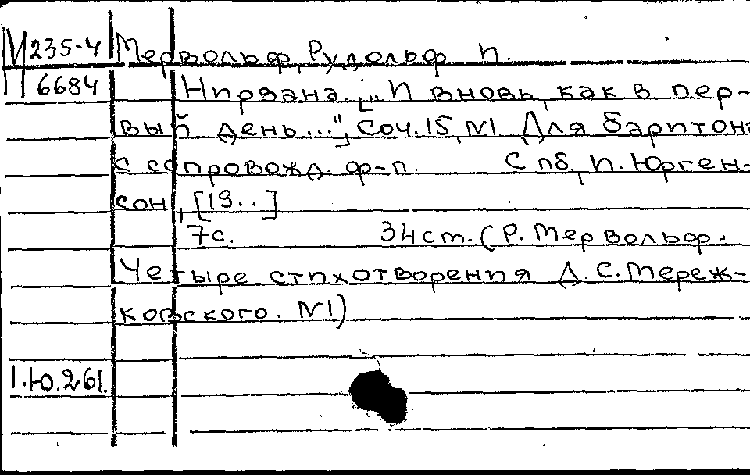 М 235-4 Мервольф, Рудольф И.
П 6684 Нирвана. ["И вновь, как в пер-
вый день..."], Соч.15, N1 Для баритона
с сопровожд. ф-п. Спб, П. Юрген-
сон, [19..]
7с. 34см. (Р. Мервольф.
Четыре стихотворения Д. С. Мереж-
ковского. N1)
1.Ю.261.